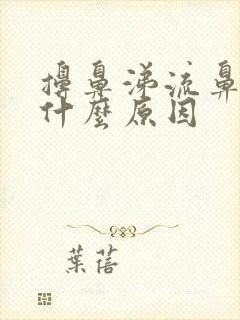 擤鼻涕流鼻
什麼原因
葉蓓